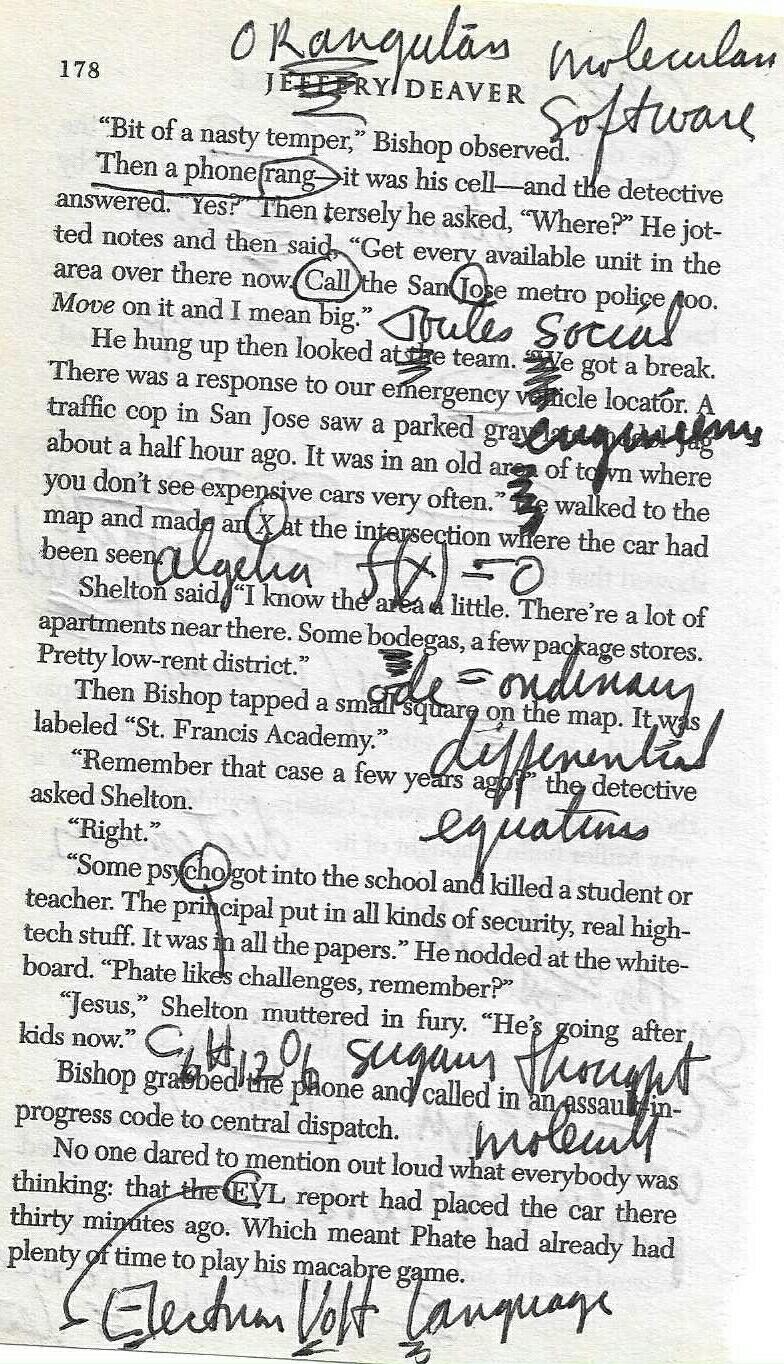 ORangutan molecular
178
JEFFERY DEAVER
software
“Bit of a nasty temper,” Bishop observed.
Then a phone rang—it was his cell—and the detective
answered. “Yes?” Then tersely he asked, “Where?” He jot-
ted notes and then said, “Get every available unit in the
area over there now. Call the San Jose metro police too.
Move on it and I mean big.”
Joules social
He hung up then looked at the team. “We got a break.
There was a response to our emergency vehicle locator. A
traffic cop in San Jose saw a parked gray late-model Jag
engineering
about a half hour ago. It was in an old area of town where
you don’t see expensive cars very often.” He walked to the
map and made an X at the intersection where the car had
been seen.
algebra f(x) = 0
Shelton said, “I know the area a little. There’re a lot of
apartments near there. Some bodegas, a few package stores.
Pretty low-rent district.”
ode = ordinary
Then Bishop tapped a small square on the map. It was
labeled “St. Francis Academy.”
differential
“Remember that case a few years ago?” the detective
asked Shelton.
equations
“Right.”
“Some psycho got into the school and killed a student or
teacher. The principal put in all kinds of security, real high-
tech stuff. It was in all the papers.” He nodded at the white-
board. “Phate likes challenges, remember?”
“Jesus,” Shelton muttered in fury. “He’s going after
kids now.”
C6H12O6 sugars thought
Bishop grabbed the phone and called in an assault-in-
progress code to central dispatch.
molecule
No one dared to mention out loud what everybody was
thinking: that the EVL report had placed the car there
thirty minutes ago. Which meant Phate had already had
plenty of time to play his macabre game.
Electron Volt Language